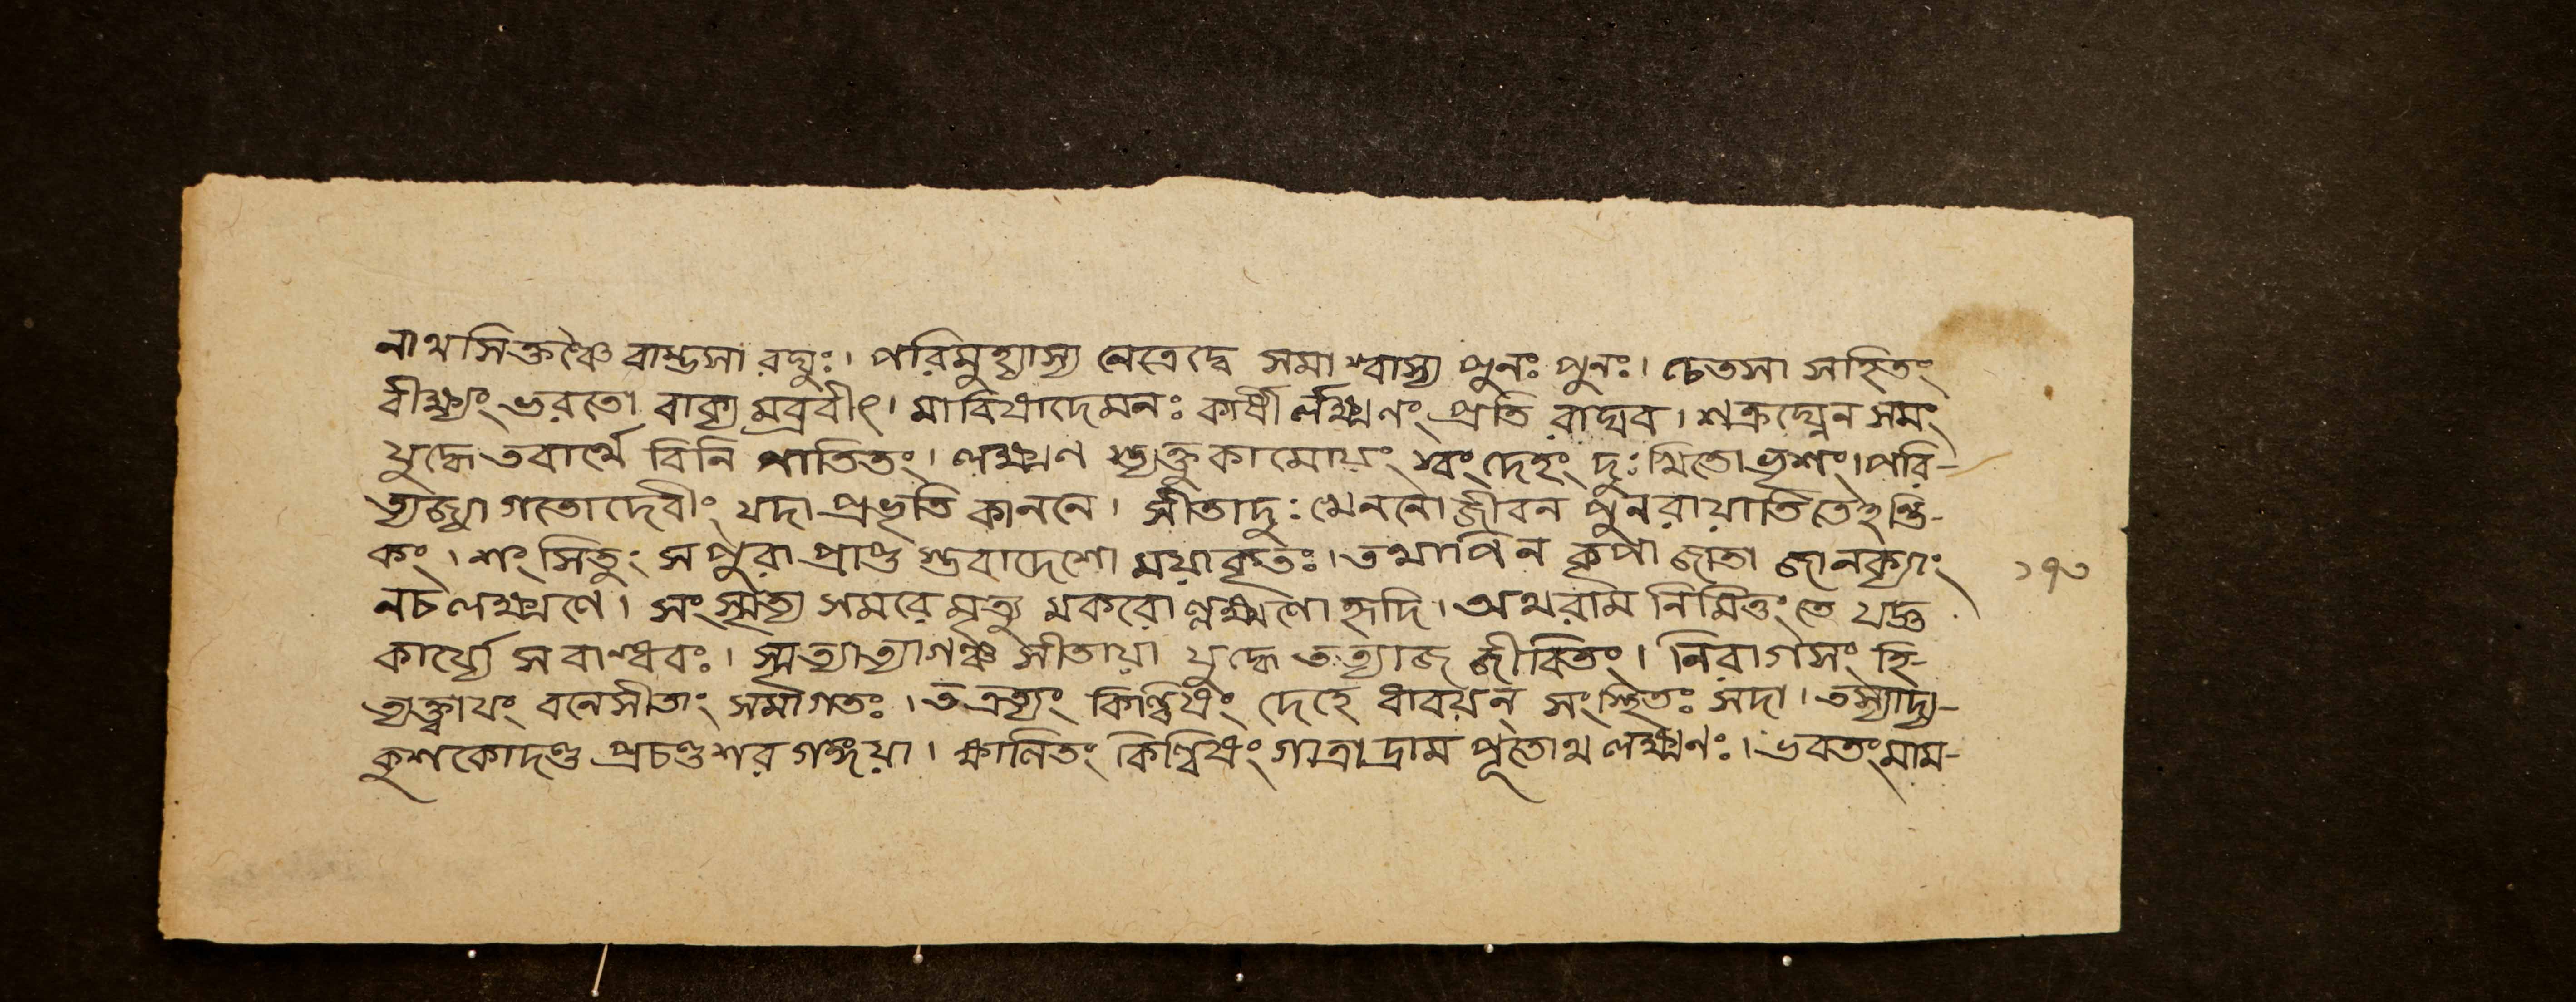 নাথসিক্তশ্চৈ বাম্ভসা রঘুঃ। পরিমুহ্যাস্য নেত্রেদ্বে সমাশ্বাস্য পুনঃ পুনঃ। চেতসা সহিতং
বীক্ষ্যং ভরতো বাক্য মব্রবীৎ। মাবিষাদেমনঃ কার্ষী র্লক্ষ্মণং প্রতি রাঘব। শত্রুঘ্নেন সমং
যুদ্ধে তবার্থে বিনি পাতিতং। লক্ষ্মণ স্ত্যক্তুকামোয়ং স্বংদেহং দুঃখিতোভৃশং। পরি-
ত্যজ্যা গতোদেবীং যদা প্রভৃতি কাননে। সীতাদুঃখেননো জীবন পুনরায়াতিতেহন্তি-
কং। শংসিতুং স পুরা প্রাপ্ত স্তবাদেশো ময়াকৃতঃ। তথাপিন কৃপা জাতা জানক্যাং
নচলক্ষ্মণে। সংস্মৃত্য সমরেমৃত্যু মকরো ল্লক্ষ্মণোহৃদি। অথরাম নিমিত্তংতে যদ্ধ
কার্য্যে সবান্ধবঃ। স্মৃত্যাত্যাগঞ্চ সীতায়া যুদ্ধে তত্যাজ জীবিতং। নিরাগসং হি-
ত্যক্ত্বাযং বনেসীতাং সমাগতঃ। তত্রত্যং কিল্বিষং দেহে ধাবয়ন্ সংস্থিতঃ সদা। তস্যাদ্য-
কুশকোদণ্ড প্রচণ্ডশর গঙ্গয়া। ক্ষালিতং কিল্বিষং গাত্রাদ্রাম পূতোথ লক্ষ্মণঃ। ভবতংমাম-
১৭৩